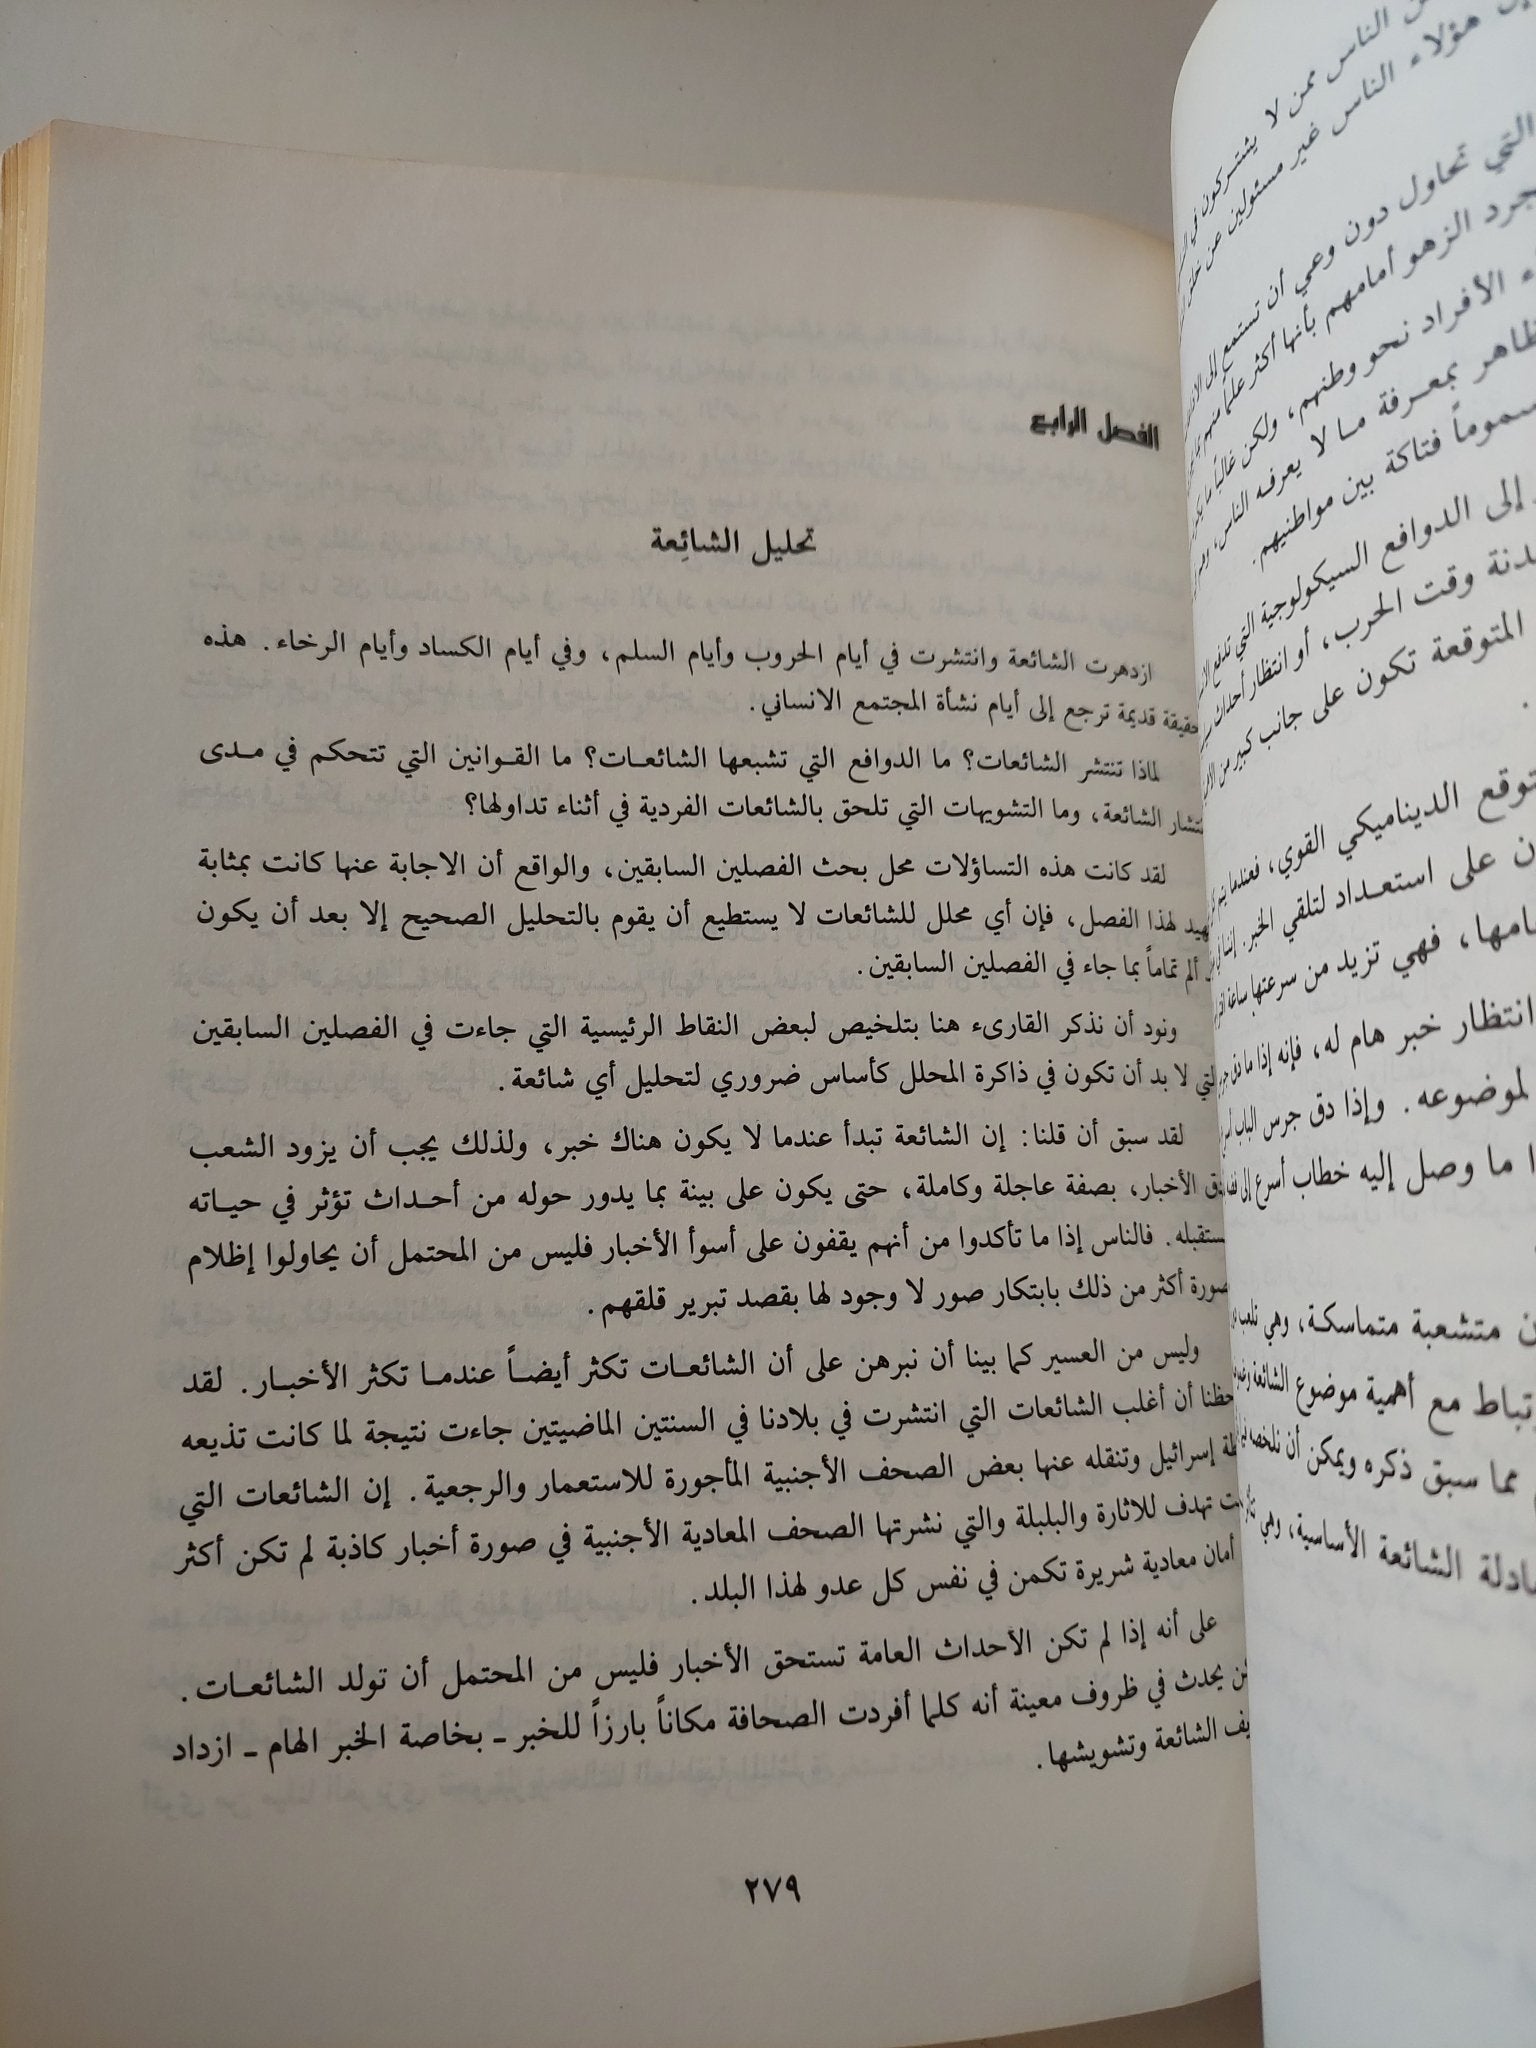 الفصل الرابع
تحليل الشائِعة
ازدهرت الشائعة وانتشرت في أيام الحروب وأيام السلم، وفي أيام الكساد وأيام الرخاء. هذه
حقيقة قديمة ترجع إلى أيام نشأة المجتمع الانساني.
لماذا تنتشر الشائعات؟ ما الدوافع التي تشبعها الشائعات؟ ما القوانين التي تتحكم في مدى
نتشار الشائعة، وما التشويهات التي تلحق بالشائعات الفردية في أثناء تداولها؟
لقد كانت هذه التساؤلات محل بحث الفصلين السابقين، والواقع أن الاجابة عنها كانت بمثابة
هيد لهذا الفصل، فإن أي محلل للشائعات لا يستطيع أن يقوم بالتحليل الصحيح إلا بعد أن يكون
ألم تماماً بما جاء في الفصلين السابقين.
ونود أن نذكر القارىء هنا بتلخيص لبعض النقاط الرئيسية التي جاءت في الفصلين السابقين
لتي لا بد أن تكون في ذاكرة المحلل كأساس ضروري لتحليل أي شائعة.
لقد سبق أن قلنا: إن الشائعة تبدأ عندما لا يكون هناك خبر، ولذلك يجب أن يزود الشعب
الأخبار، بصفة عاجلة وكاملة، حتى يكون على بينة بما يدور حوله من أحداث تؤثر في حياته
ستقبله. فالناس إذا ما تأكدوا من أنهم يقفون على أسوأ الأخبار فليس من المحتمل أن يحاولوا إظلام
صورة أكثر من ذلك بابتكار صور لا وجود لها بقصد تبرير قلقهم.
وليس من العسير كما بينا أن نبرهن على أن الشائعات تكثر أيضاً عندما تكثر الأخبار. لقد
حظنا أن أغلب الشائعات التي انتشرت في بلادنا في السنتين الماضيتين جاءت نتيجة لما كانت تذيعه
إسرائيل وتنقله عنها بعض الصحف الأجنبية المأجورة للاستعمار والرجعية. إن الشائعات التي
تهدف للاثارة والبلبلة والتي نشرتها الصحف المعادية الأجنبية في صورة أخبار كاذبة لم تكن أكثر
أمان معادية شريرة تكمن في نفس كل عدو لهذا البلد.
على أنه إذا لم تكن الأحداث العامة تستحق الأخبار فليس من المحتمل أن تولد الشائعات.
كن يحدث في ظروف معينة أنه كلما أفردت الصحافة مكاناً بارزاً للخبر ـ بخاصة الخبر الهام ـ ازداد
يف الشائعة وتشويشها.
٢٧٩
الناس ممن لا يشتركون في
هؤلاء الناس غير مسئولين عن
التي تحاول دون وعي أن تستمع إلى
جرد الزهو أمامهم بأنها أكثر علماً منهم
ء الأفراد نحو وطنهم، ولكن غالباً ما
ظاهر بمعرفة ما لا يعرفه الناس،
سموماً فتاكة بين مواطنيهم.
إلى الدوافع السيكولوجية التي تدفع
دنة وقت الحرب، أو انتظار أحداث
المتوقعة تكون على جانب كبير من
توقع الديناميكي القوي، فعندما
ن على استعداد لتلقي الخبر.
امها، فهي تزيد من سرعتها ساعة
انتظار خبر هام له، فإنه إذا ما دق
لموضوعه. وإذا دق جرس الباب
ا ما وصل إليه خطاب أسرع إلى
ن متشعبة متماسكة، وهي تلعب
تباط مع أهمية موضوع الشائعة
مما سبق ذكره ويمكن أن نلخصه
ادلة الشائعة الأساسية، وهي